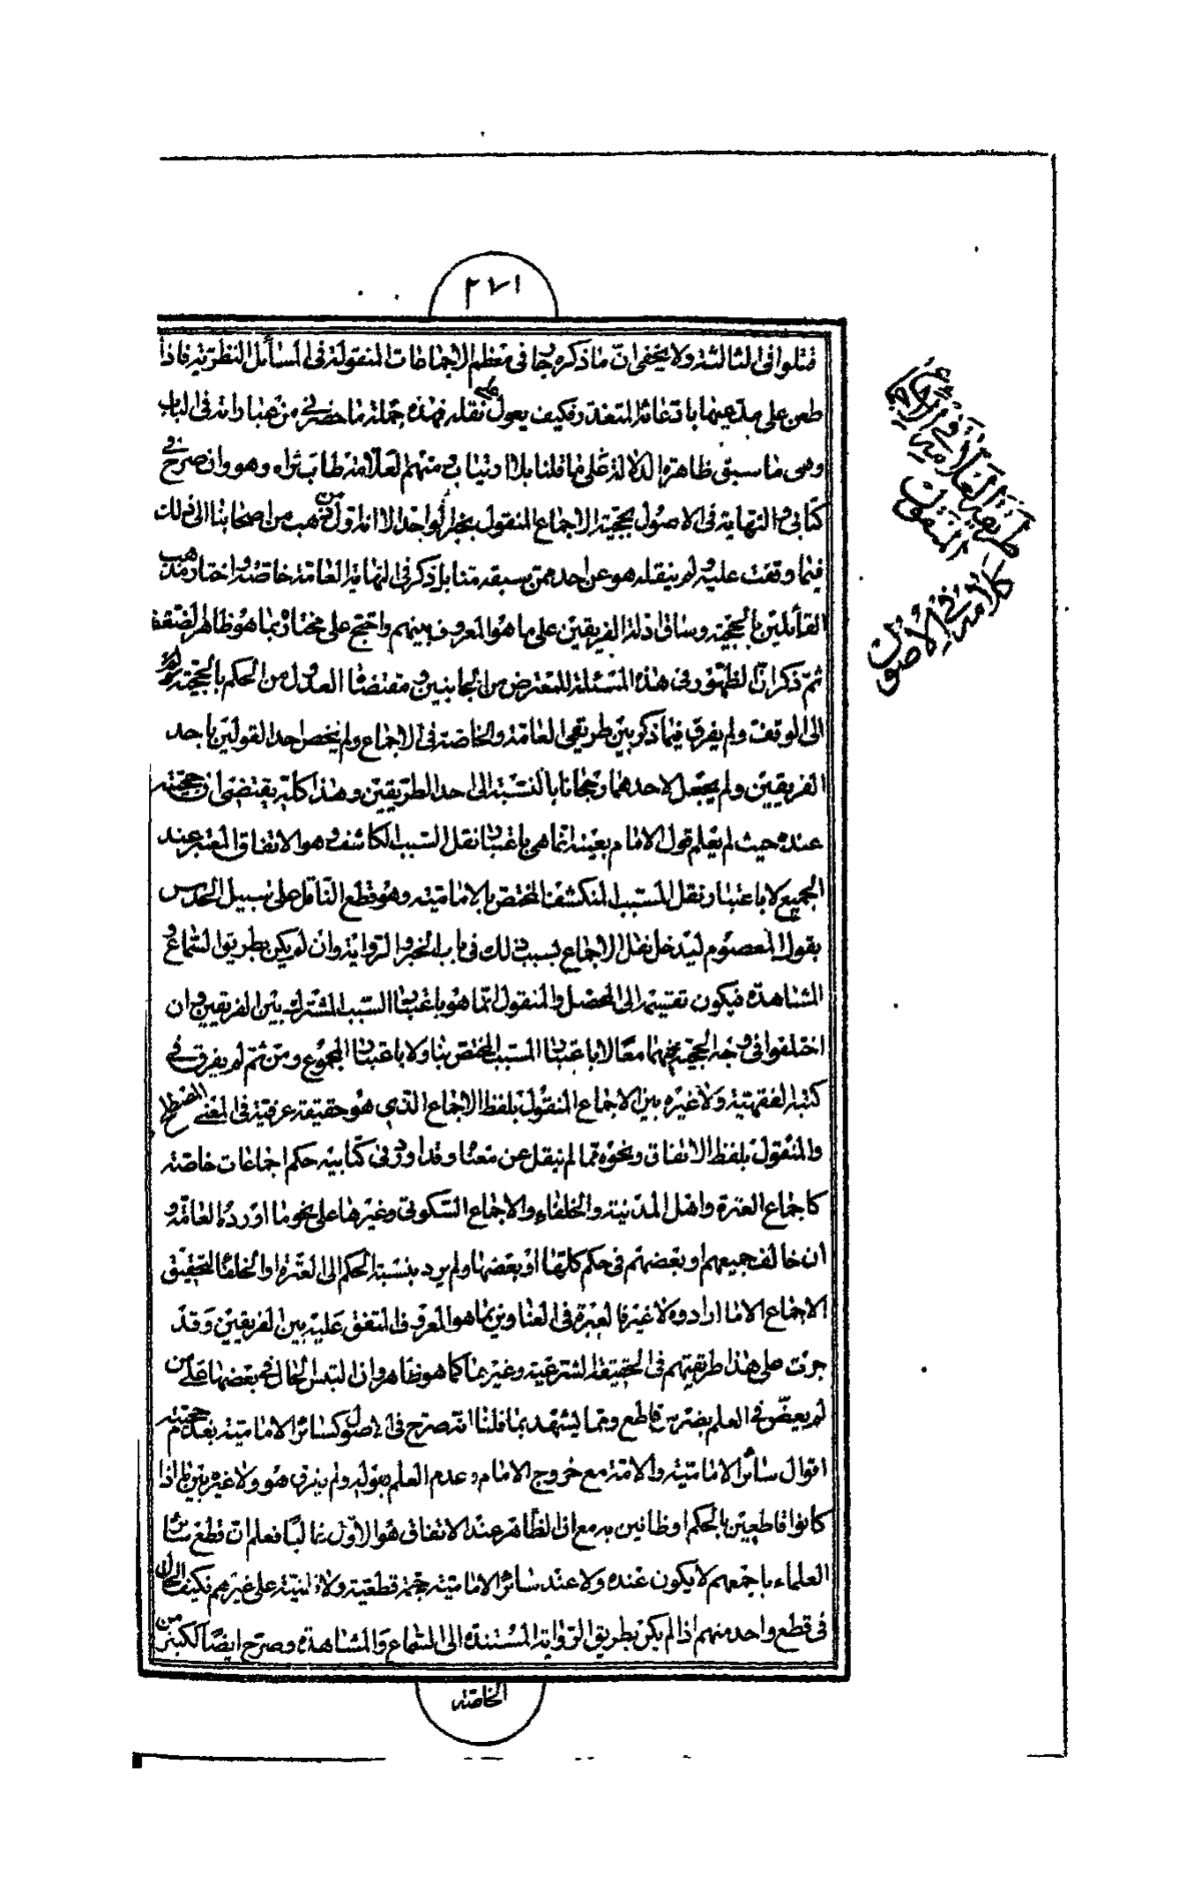 ٢٧١
فتلوا فى الثالثة ولا يخفى ان ما ذكره يجرى فى معظم الاجماعات المنقولة فى المسائل النظرية فاذا
طعن على مدعيها بادعائه المتعذر فكيف يعول على نقله فهذه جملة ما حضرنى من عباراته فى الباب
وهى ما سبق ظاهرة الدلالة على ما قلنا بلا ارتياب ومنهم العلامة طاب ثراه وهو وان صرح فى
كتابى النهاية فى الاصول بحجية الاجماع المنقول بخبر الواحد الا انه اول من ذهب من اصحابنا الى ذلك
فيما وقفت عليه ولم ينقله هو عن احد ممن سبقه منا بل ذكر فى النهاية العامة خاصة واختار مذهب
القائلين بالحجية وساق ادلة الفريقين على ما هو المعروف بينهم واحتج على مختاره بما هو ظاهر الضعف
ثم ذكر ان الظهور فى هذه المسئلة للمعترض من الجانبين ومقتضاه العدول من الحكم بالحجية
الى الوقف ولم يفرق فيما ذكر بين طريقى العامة والخاصة فى الاجماع ولم يخص احد القولين باحد
الفريقين ولم يجعل لاحدهما رجحانا بالنسبة الى احد الطريقين وهذا كله يقتضى ان حجيته
عنده حيث لم يعلم قول الامام بعينه انما هى باعتبار نقل السبب الكاشف وهو الاتفاق المعتبر عند
الجميع لا باعتبار نقل المسبب المنكشف المختص بالامامية وهو قطع الناقل على سبيل الحدس
بقول المعصوم ليدخل نقل الاجماع بسبب ذلك فى باب الخبر والرواية وان لم يكن بطريق السماع و
المشاهدة فيكون تقسيمه الى المحصل والمنقول انما هو باعتبار السبب المشترك بين الفريقين وان
اختلفوا فى وجه الحجية فيهما معا لا باعتبار المسبب المختص بنا ولا باعتبار المجموع ومن ثم لم يفرق فى
كتبه الفقهية ولا غيره بين الاجماع المنقول بلفظ الاجماع الذى هو حقيقة عرفية فى المعنى المصطلح
والمنقول بلفظ الاتفاق ونحوه مما لم ينقل عن معناه وقد اورد فى كتابيه حكم اجماعات خاصة
كاجماع العترة واهل المدينة والخلفاء والاجماع السكوتى وغيرها على نحو ما اورده العامة و
ان خالف جميعهم او بعضهم فى حكم كلها او بعضها ولم يرد بنسبة الحكم الى العترة او الخلفا لتحقيق
الاجماع الا ما ارادوه لا غير فالعبرة فى العناوين بما هو المعروف المتفق عليه بين الفريقين وقد
جرت على هذا طريقتهم فى الحقيقة الشرعية وغيرها كما هو ظاهر وان التبس الحال فى بعضها على من
لم يعض فى العلم بضرس قاطع ومما يشهد بما قلنا انه صرح فى الاصول كسائر الامامية بعدم حجية
اقوال سائر الامامية والامة مع خروج الامام وعدم العلم بقوله ولم يفرق هو ولا غيره بين ما اذا
كانوا قاطعين بالحكم او ظانين به مع ان الظاهر عند الاتفاق هو الاول غالبا فعلم ان قطع سائر
العلماء باجمعهم لا يكون عنده ولا عند سائر الامامية حجة قطعية ولا ظنية على غيرهم فكيف الحال
فى قطع واحد منهم اذا لم يكن بطريق الرواية المستندة الى السماع والمشاهدة وصرح ايضا كالكثير من
الخاصة
طريقة العلامة فى الاجماع
المنقول
كلامه فى الاصول